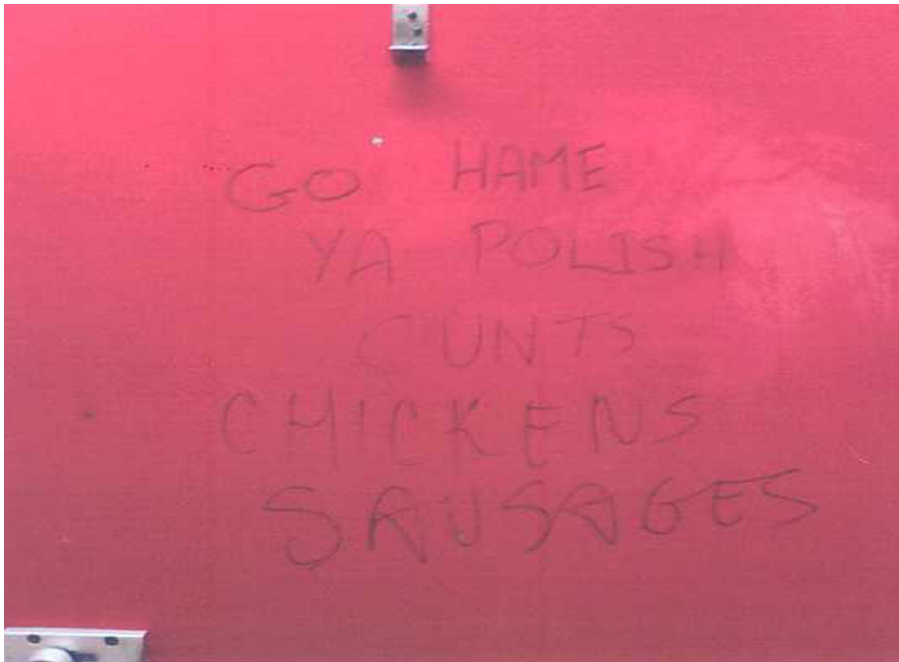 GO HAME
YA POLISH
CUNTS
CHICKENS
SAUSAGES